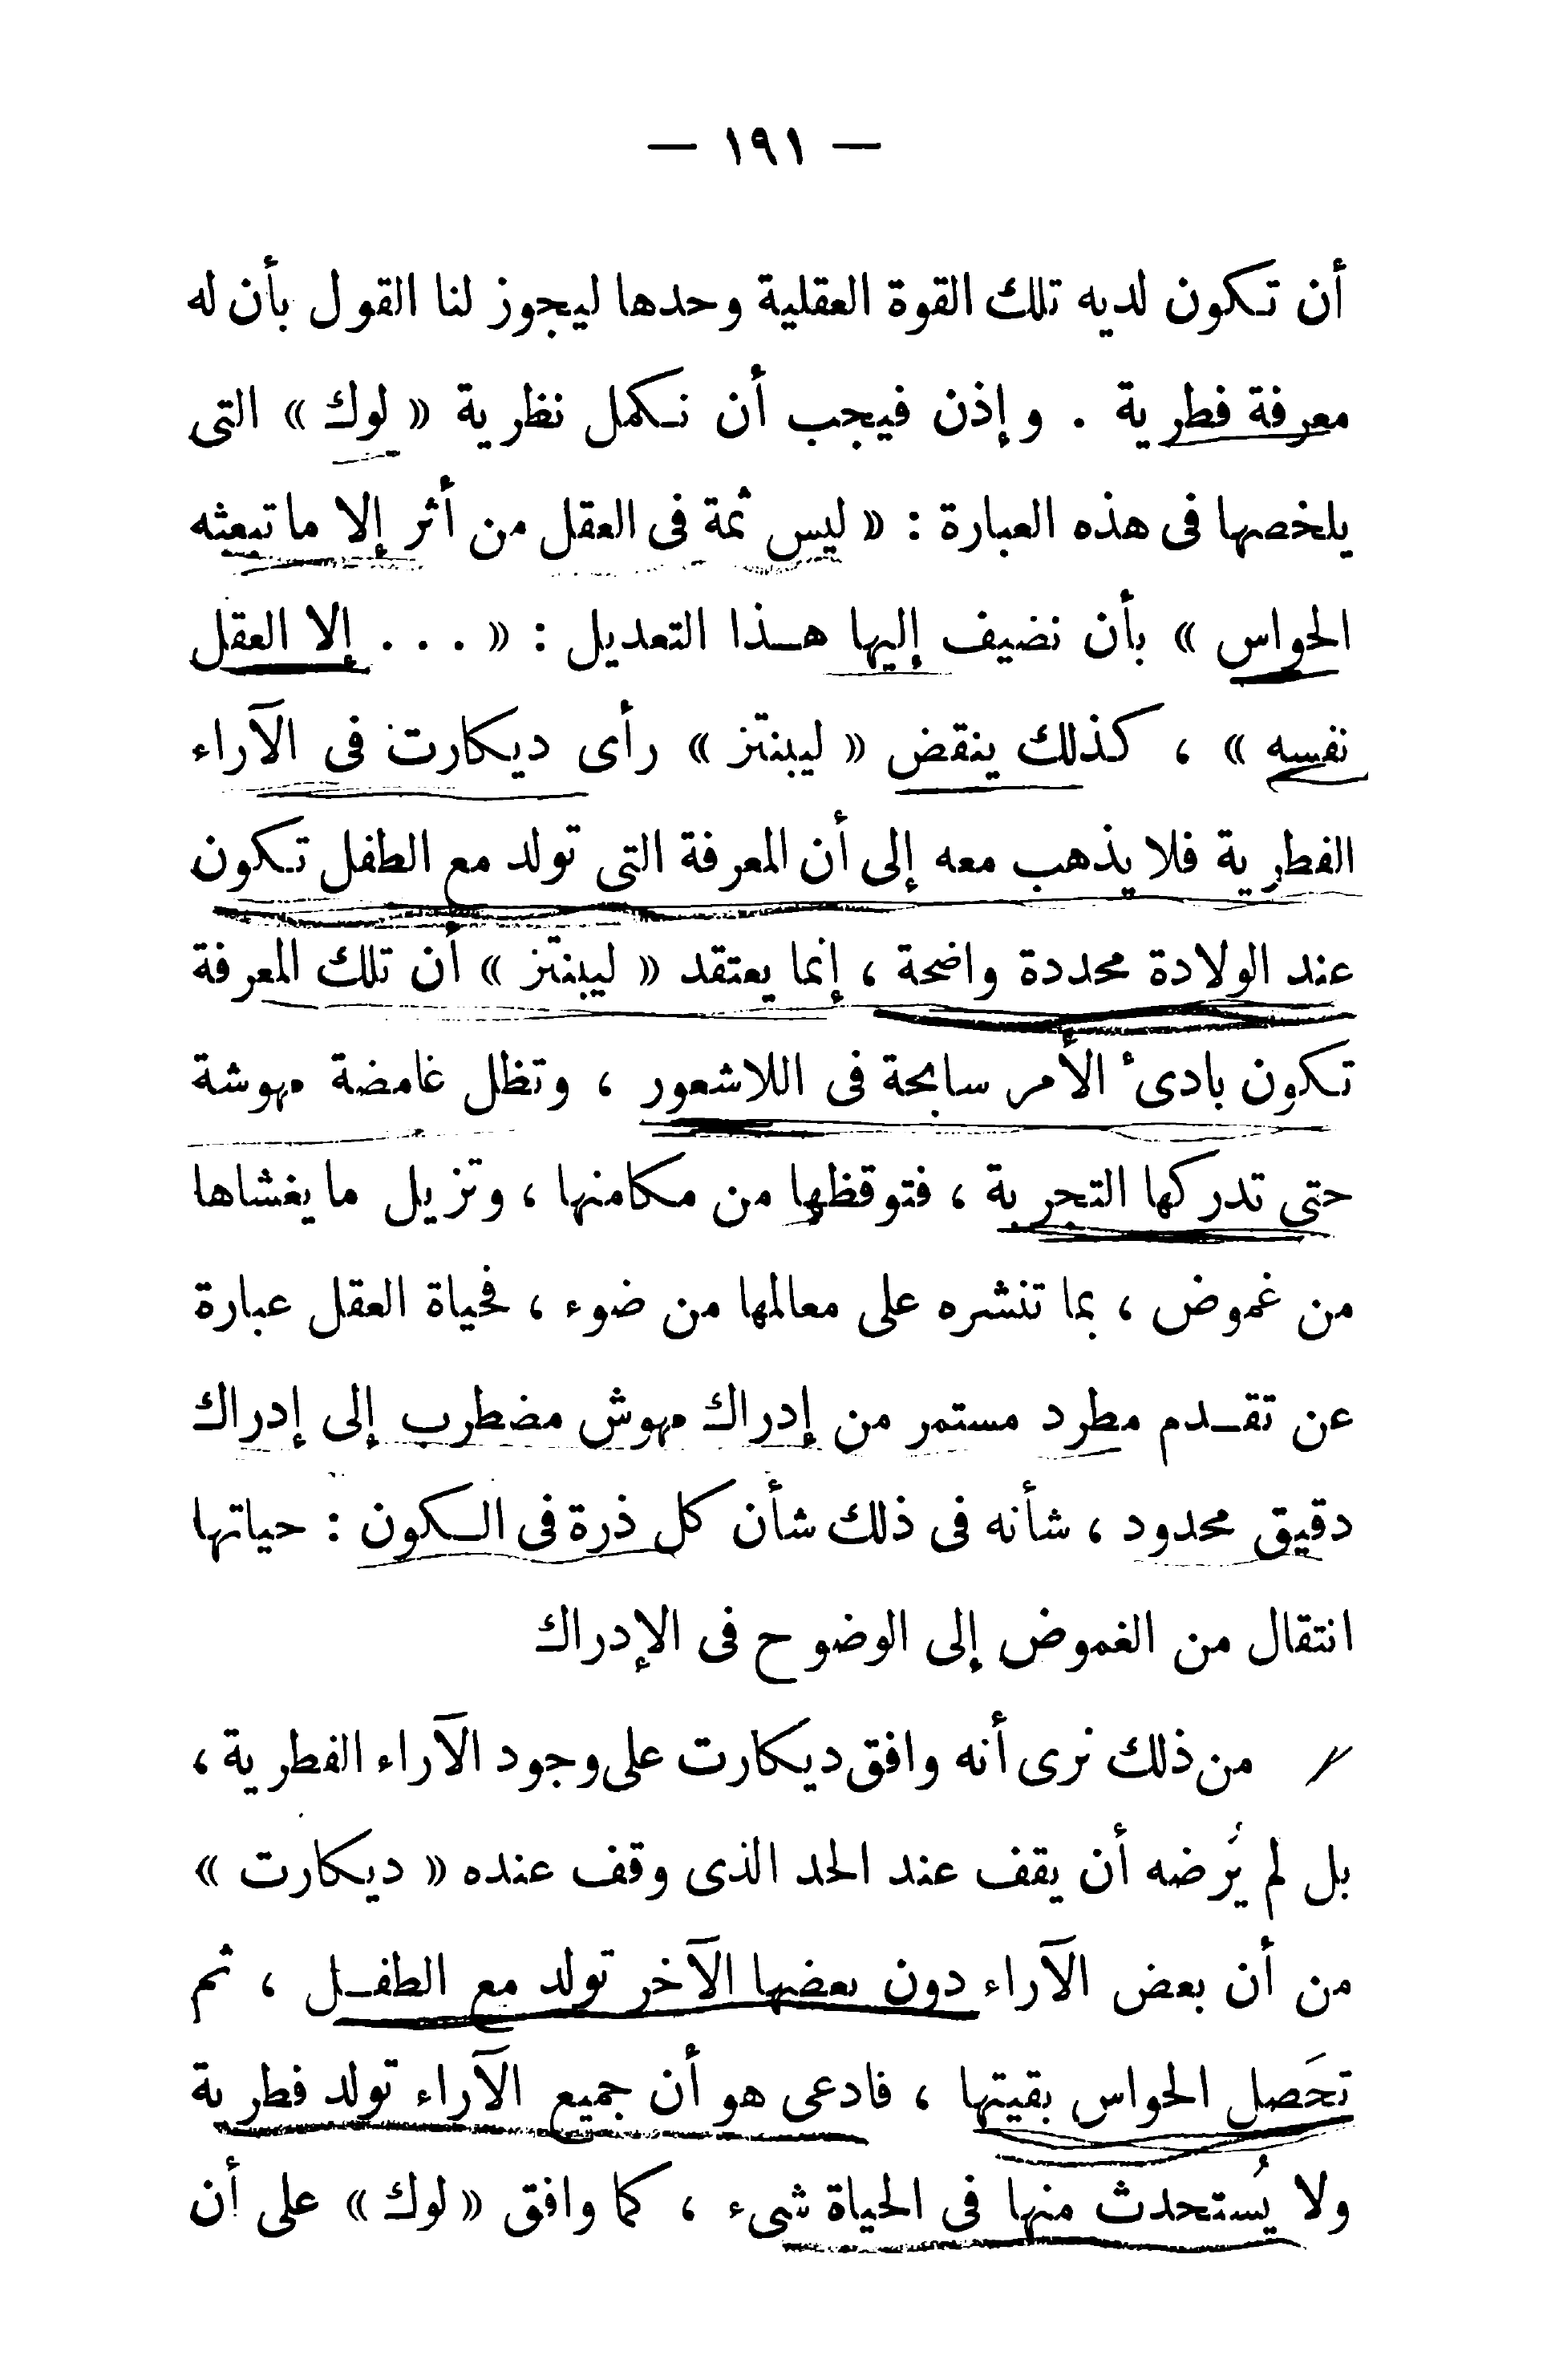 — ١٩١ —
أن تكون لديه تلك القوة العقلية وحدها ليجوز لنا القول بأن له
معرفة فطرية . وإذن فيجب أن نكمل نظرية « لوك » التى
يلخصها فى هذه العبارة : « ليس ثمة فى العقل من أثر إلا ما تبعثه
الحواس » بأن نضيف إليها هذا التعديل : « . . . إلا العقل
نفسه » ، كذلك ينقض « ليبنتز » رأى ديكارت فى الآراء
الفطرية فلا يذهب معه إلى أن المعرفة التى تولد مع الطفل تكون
عند الولادة محددة واضحة ، إنما يعتقد « ليبنتز » أن تلك المعرفة
تكون بادىء الأمر سابحة فى اللاشعور ، وتظل غامضة مهوشة
حتى تدركها التجربة ، فتوقظها من مكامنها ، وتزيل ما يغشاها
من غموض ، بما تنشره على معالمها من ضوء ، فحياة العقل عبارة
عن تقدم مطرد مستمر من إدراك مهوش مضطرب إلى إدراك
دقيق محدود ، شأنه فى ذلك شأن كل ذرة فى الكون : حياتها
انتقال من الغموض إلى الوضوح فى الإدراك
من ذلك نرى أنه وافق ديكارت على وجود الآراء الفطرية ،
بل لم يُرضه أن يقف عند الحد الذى وقف عنده « ديكارت »
من أن بعض الآراء دون بعضها الآخر تولد مع الطفل ، ثم
تحَصل الحواس بقيتها ، فادعى هو أن جميع الآراء تولد فطرية
ولا يُستحدث منها فى الحياة شىء ، كما وافق « لوك » على أن